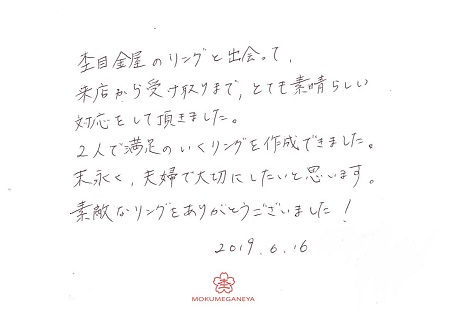 杢目金屋のリングと出会って、
来店から受け取りまで、とても素晴らしい
対応をして頂きました。
2人で満足のいくリングを作成できました。
末永く、夫婦で大切にしたいと思います。
素敵なリングをありがとうございました!
2019.6.16
杢
MOKUMEGANEYA